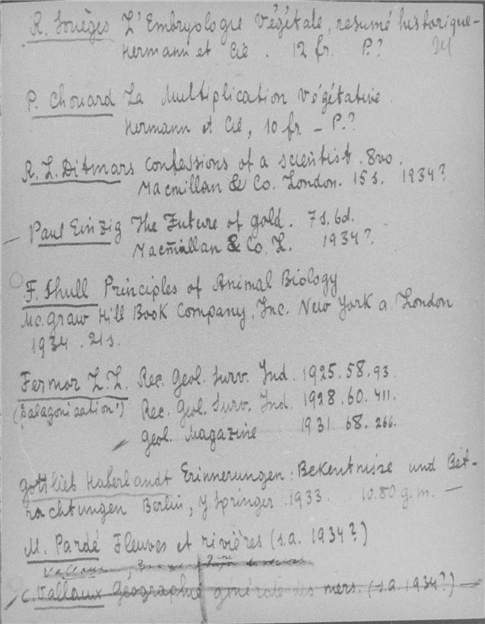 R. Souèges L'Embryologie Végétale, resumé historique-
Hermann et Cie. 12 fr. P.?
P. Chouard La Multiplication végétative.
Hermann et Cie, 10 fr - P.?
R. L. Ditmars Confessions of a scientist. 8vo.
Macmillan & Co. London. 15 s. 1934?
Paul Einzig The Future of gold. 7 s. 6d.
Macmillan & Co. L. 1934?
F. Shull Principles of Animal Biology
Mc. Graw Hill Book Company, Inc. New York a. London
1934. 21 s.
Fermor L.L. Rec. Geol. Surv. Ind. 1925. 58. 93
(Palagonisation') Rec. Geol. Surv. Ind. 1928. 60. 411.
Geol. Magazine 1931 68. 266.
Gottlieb Haberlandt Erinnerungen: Bekentnisze und Bet-
rachtungen Berlin, J. Springer. 1933. 10.80 g.m. —
M. Pardé Fleuves et rivières (s.a. 1934?)
Vallaux
C. Vallaux Géographie générale des mers. (s.a. 1934?)